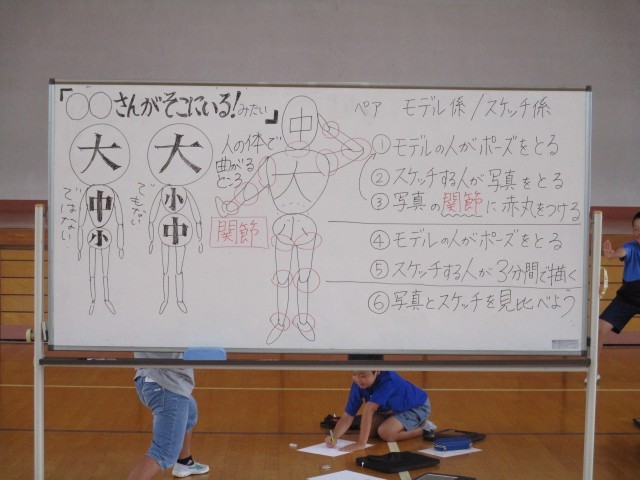 「○○さんがそこにいる!みたい」
大
中
小
ではない
大
小
中
でもない
人の体で
曲がる
ところ
関節
中
大
小
ペア モデル係/スケッチ係
①モデルの人がポーズをとる
②スケッチする人が写真をとる
③写真の関節に赤丸をつける
④モデルの人がポーズをとる
⑤スケッチする人が3分間で描く
⑥写真とスケッチを見比べよう